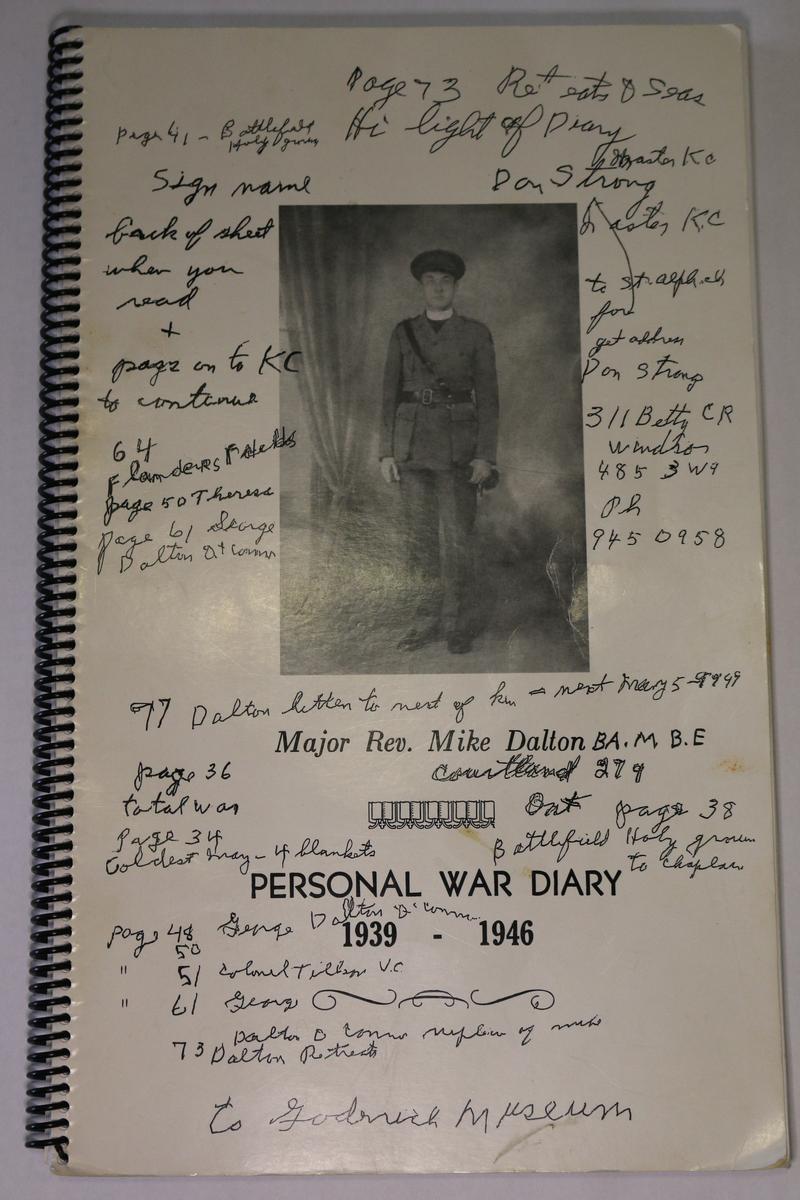 Page 73 Retreats & Seas
Hi light of Diary
Page 41 - Battlefield
Holy groun
Master KC
Sign name
Don Strong
back of sheet
Master K.C
when you
read
to St. Alph
+
for
get address
page on to KC
Don Strong
to continue
311 Betty CR
Windsor
64
485 3W9
Flanders Fields
page 50 Theresa
Ph
page 61 George
945 0958
Dalton O'Connor
77 Dalton letter to next of kin - next May 5 -
Major Rev. Mike Dalton BA. M B.E
page 36
Courtland 279
total war
page 38
Page 34
Battlefield Holy groun
Coldest May - 4 blankets
to chaplain
PERSONAL WAR DIARY
page 48 George Dalton O'Connor
50
1939 - 1946
" 51 Colonel Tilson V.C
" 61 George
Dalton O Connor nephew of mike
73 Dalton Retreats
to Goderich Museum